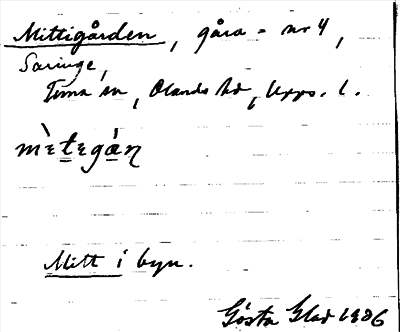 Mittigården, gåra - nr 4,
Saringe,
Tuna sn, Olands hd, Upps. l.
mὲtegán
Mitt i byn.
Gösta Glad 1986